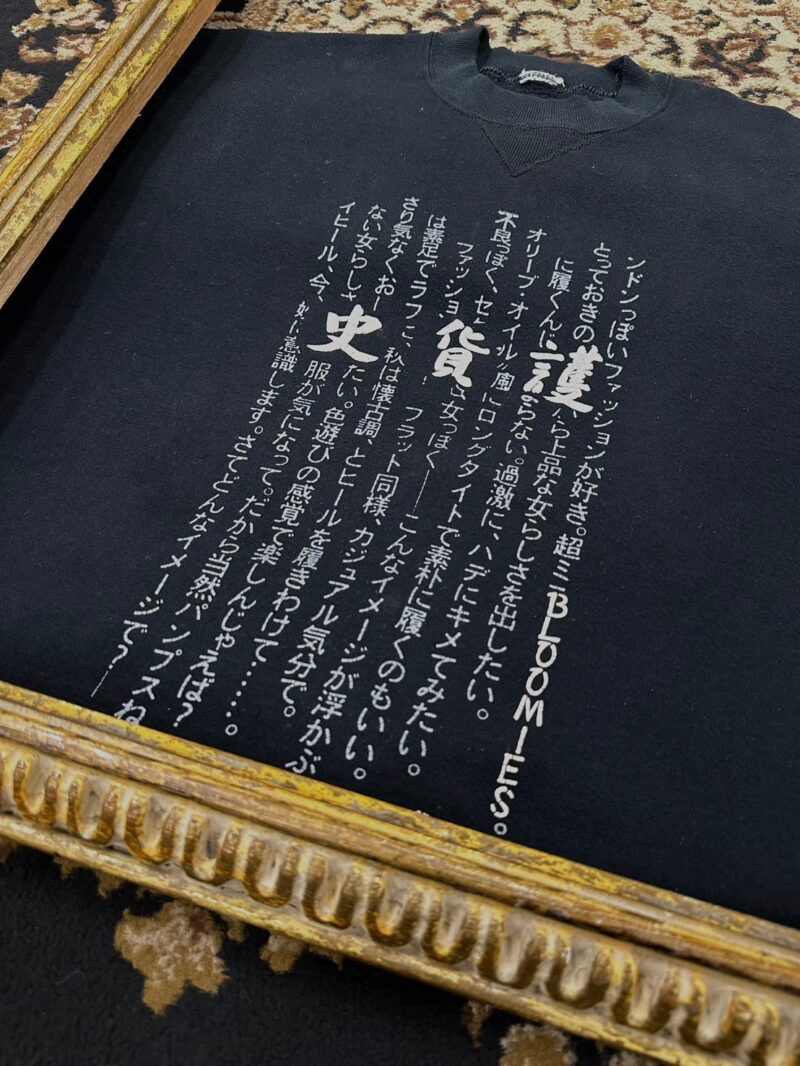 ンドンっぽいファッションが好き。超ミBLOOMIES。
とっておきの護ら上品な女らしさを出したい。
に履くんじらない。過激に、ハデにキメてみたい。
オリーブ・オイル〃風にロングタイトで素朴に履くのもいい。
不良っぽく、セ貨女っぽく——こんなイメージが浮かぶ
ファッショフラット同様、カジュアル気分で。
は素足でラフに、私は懐古調、とヒールを履きわけて……。
さり気なくおー史たい。色遊びの感覚で楽しんじゃえば?
ない女らしさ服が気になって。だから当然パンプスね
イヒール、今、妙に意識します。さてどんなイメージで?—